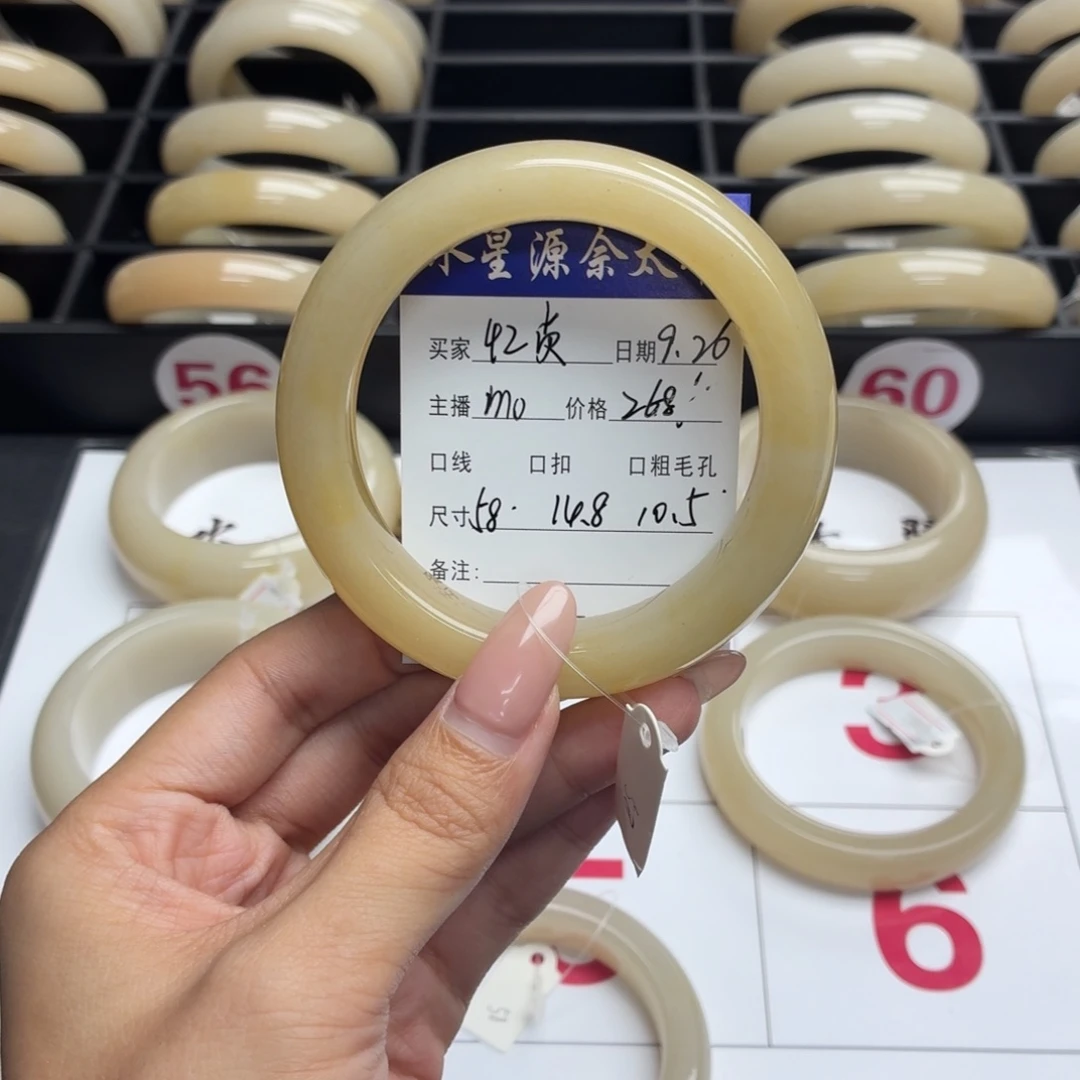 星源佘太
买家 42贞 日期 9.26
主播 mo 价格 268
口线 口扣 口粗毛孔
尺寸 58 14.8 10.5
备注:
56
60
3
6